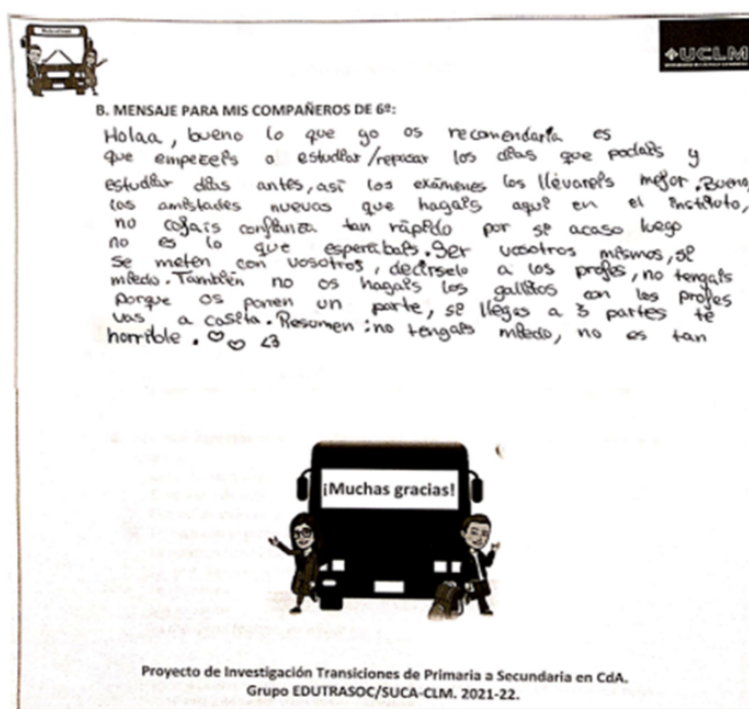 UCLM
B. MENSAJE PARA MIS COMPAÑEROS DE 6º:
Holaa, bueno lo que yo os recomendaría es
que empeceis a estudiar/repasar los dias que podais y
estudiar dias antes, así los exámenes los llevareis mejor. Bueno,
las amistades nuevas que hagais aquí en el instituto,
no cojais confianza tan rápido por si acaso luego
no es lo que esperabais. Ser vosotros mismos, si
se meten con vosotros, decirselo a los profes, no tengais
miedo. También no os hagais los gallitos con los profes
porque os ponen un parte, si llegas a 3 partes te
vas a casita. Resumen: no tengais miedo, no es tan
horrible. ♡♡ <3
¡Muchas gracias!
Proyecto de Investigación Transiciones de Primaria a Secundaria en CdA.
Grupo EDUTRASOC/SUCA-CLM. 2021-22.